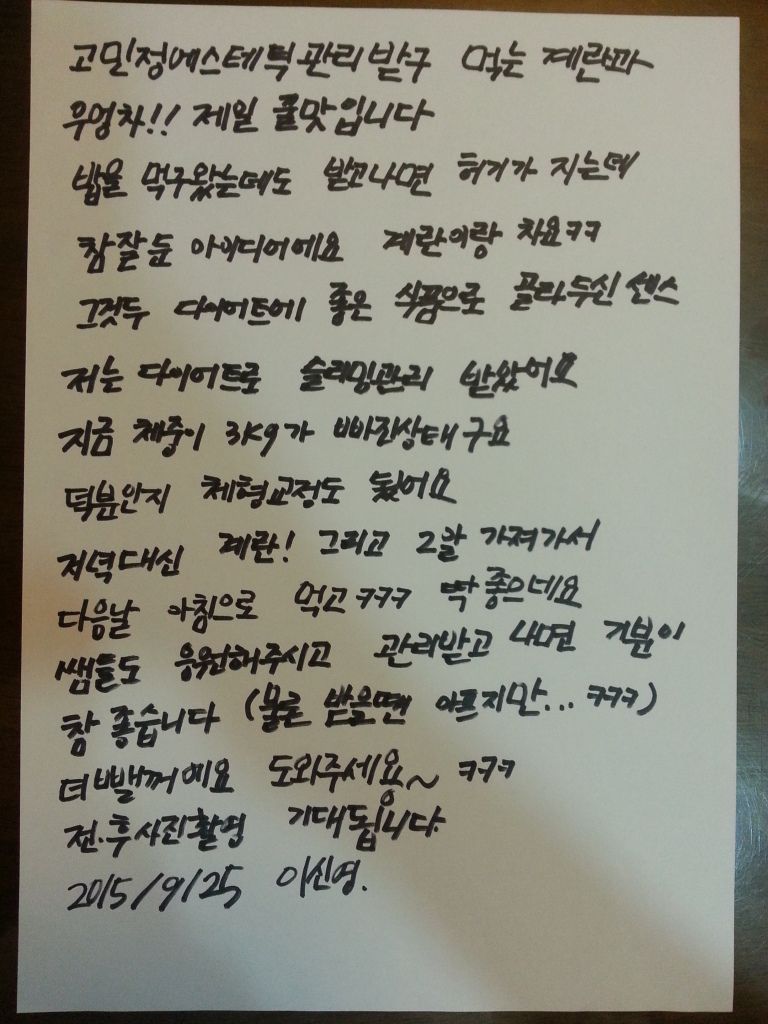 고민정에스테틱관리받구 먹는 계란과
우엉차!! 제일 꿀맛입니다
밥을 먹구왔는데도 받고나면 허기가 지는데
참 잘둔 아이디어에요 계란이랑 차요ㅋㅋ
그것두 다이어트에 좋은 식품으로 골라두신 센스
저는 다이어트로 슬리밍관리 받았어요
지금 체중이 3Kg가 빠진상태구요
덕분인지 체형교정도 됬어요
저녁대신 계란! 그리고 2알 가져가서
다음날 아침으로 먹고ㅋㅋㅋ 딱 좋으네요
쌤들도 응원해주시고 관리받고 나면 기분이
참 좋습니다 (물론 받을땐 아프지만... ㅋㅋㅋ)
더 뺄꺼에요 도와주세요~ ㅋㅋㅋ
전.후사진촬영 기대됩니다.
2015/9/25 이신영.